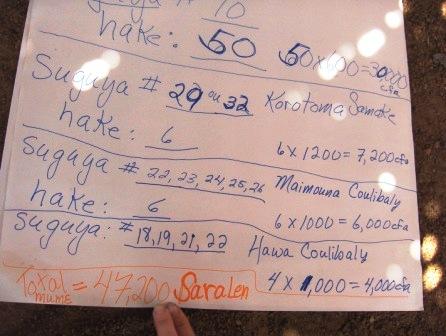 # 10
hake: 50 50x600=30,000 cfa
Suguya # 29 ou 32 Korotoma Samake
hake: 6 6 x 1200 = 7,200cfa
Suguya # 22, 23, 24, 25, 26 Maimouna Coulibaly
hake: 6 6 x 1000 = 6,000cfa
Suguya: # 18, 19, 21, 22 Hawa Coulibaly
4 x 1,000 = 4,000cfa
Total mumɛ = 47,200 Saralen